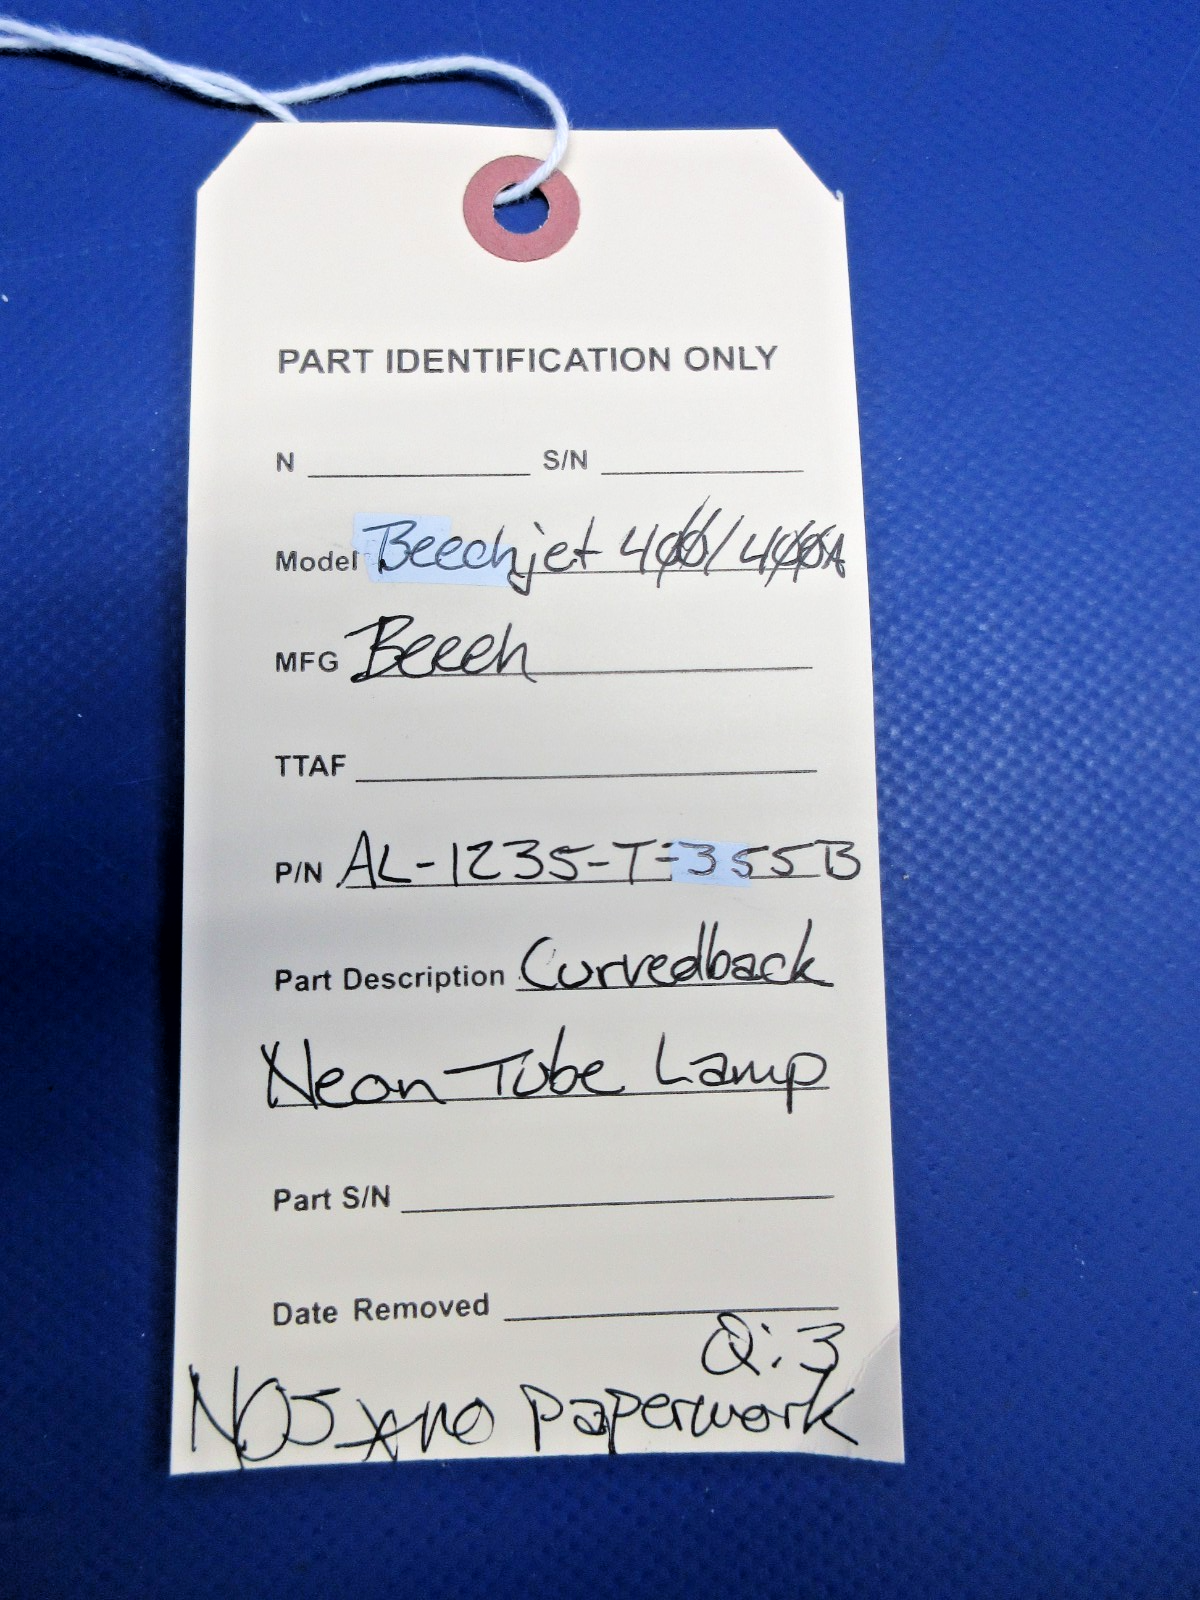 PART IDENTIFICATION ONLY
N S/N
Model Beechjet 400/400A
MFG Beech
TTAF
P/N AL-1235-T-355B
Part Description Curvedback
Neon Tube Lamp
Part S/N
Date Removed
Q: 3
NOS * no paperwork